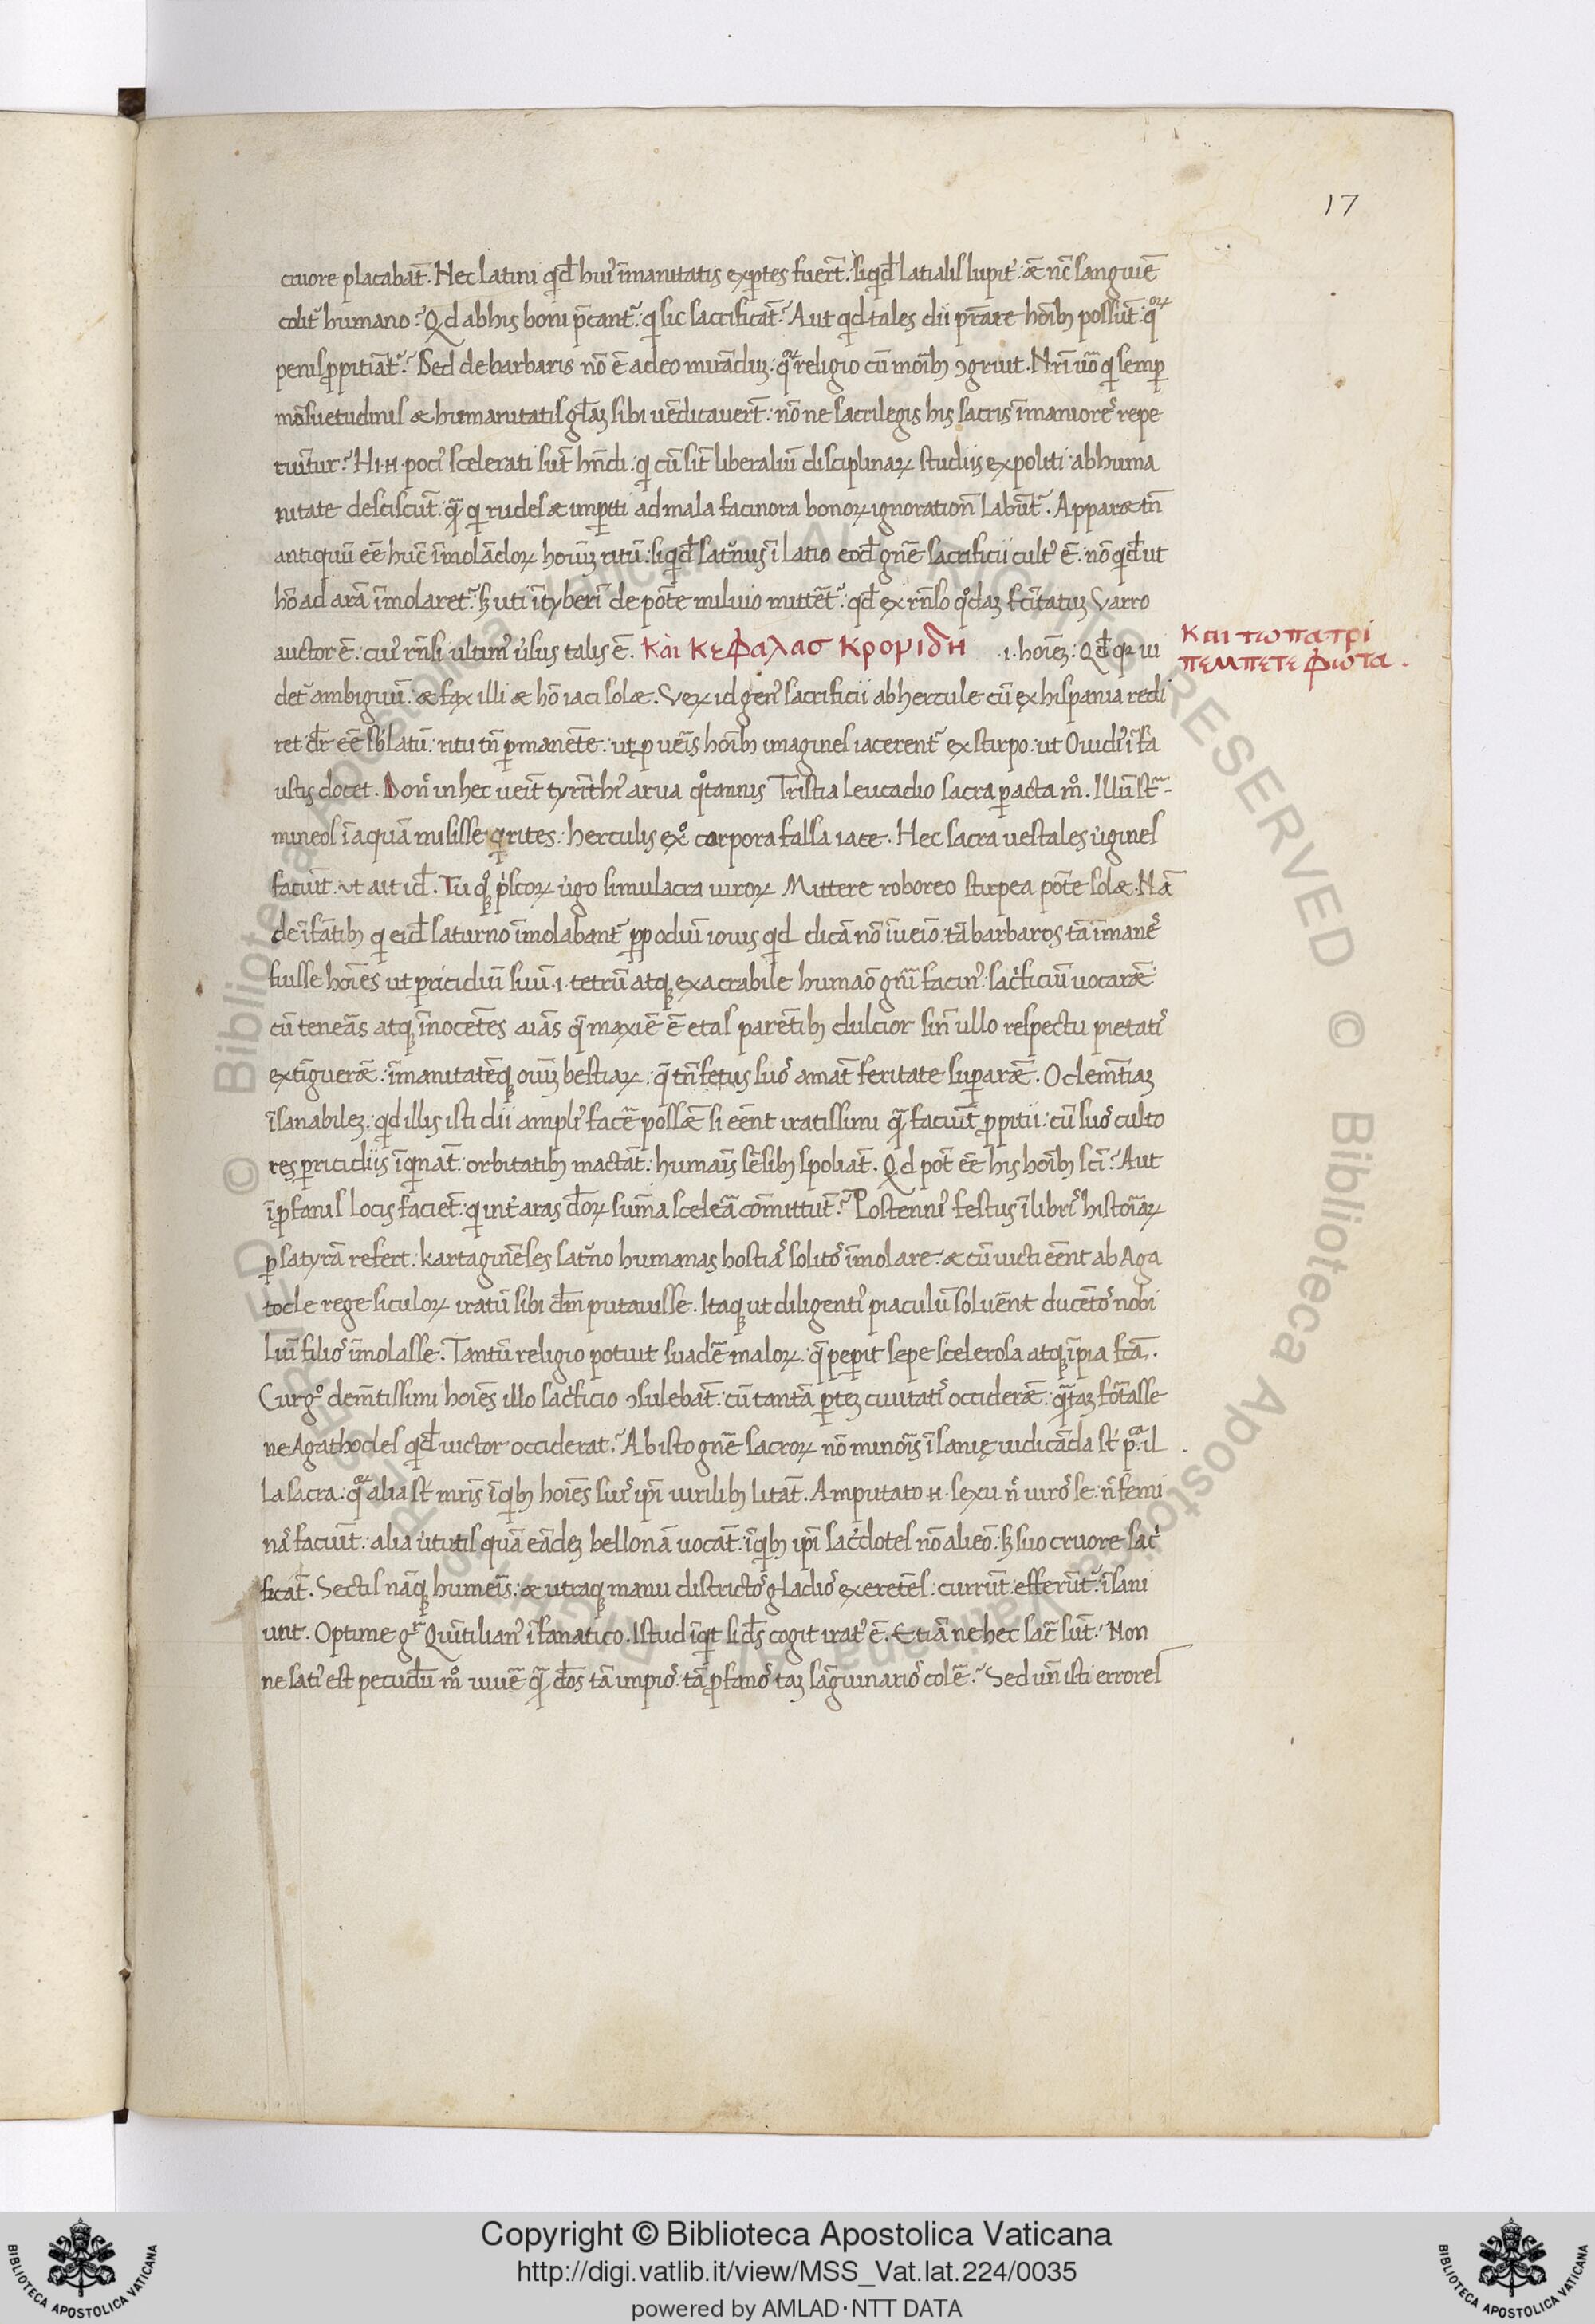 17
cruore placabāt. Hec latini qd̄ huiꝰ īmanitatis exꝑtes fuer̄t: siqd̄ latialis Iupit᷑: æ nc̄ sanguiē
colit᷑ humano? Qd ab his boni p̄cant᷑: qi sic sacrificāt? Aut qid tales dii p̄stare hoīb; possūt: qoꝝ
penis ꝓpitiāt᷑? Sed de barbaris nō ē adeo mirādū: qoꝝ religio cū morib; ꝯgruit. Nr̄i uo᷑ qi semꝑ
māsuetudinis æ humanitatis gl̄az sibi uēdicauer̄t: nōne sacrilegis his sacris īmaniorꝰ repe
riūtur? Hi .H. pociꝰ scelerati sūt hn̄di: qi cū sīt liberaliū disciplinaꝝ studiis expoliti ab huma
nitate desciscūt: qā qi rudes æ imꝑiti ad mala facinora bonoꝝ ignoration̄ labūt᷑. Apparæ tn̄
antiquū eē hūc īmolādoꝝ hoīuz ritū: siqd̄ Saturnus ī latio eod̄ gn̄e sacrificii cultꝰ ē: nō qd̄ ut
hō ad arā īmolaret᷑: sꝫ uti ī tyberī de pōte miluio mittēt᷑: qd̄ ex rn̄so qdaz fc̄itatuz Varro
auctor ē: cuiꝰ rn̄si ultimꝰ úsus talis ē. Και κεφαλας κρονιδη .i. hoīez: Qd̄ qꝛ ui
και τω πατρι
πεμπετε φωτα .
det᷑ ambiguū: æ fax illi æ hō iaci solæ. Veꝝ id genꝰ sacrificii ab hercule cū ex hispania redi
ret dr̄ eē sblatū: ritu tn̄ ꝑmanēte: ut ꝓ ueīs hoīb; imagines iacerent᷑ ex scirpo: ut Ouidiꝰ ī fa
ustis docet. Donc̄ in hec ueīt tyrīthiꝰ arua qotannis Tristia leucadio sacra ꝑacta mo. Illū str̄a
mineos ī aquā misisse qirites: herculis exo corpora falsa iace. Hec sacra uestales úgines
faciūt. ut ait id̄. Tu qoqꝫ p̄iscoꝝ úgo simulacra uiroꝝ Mittere roboreo scirpea pōte solæ. Nā
de īfātib; qi eid̄ saturno īmolabant᷑ ꝓp odiū iouis qid dicā nō īueīo: tā barbaros tā īmanēꝰ
fuisse hoīes ut pricidiū suū .i. tetrū atqꝫ exacrabile humāo gn̄ui facinꝰ: sacrificiū uocaræ
cū tenēas atqꝫ īnocētes aīas q̄ maxīē ē etas parētib; dulcior sin̄ ullo respectu pietatiꝰ
extīguerǣ: īmanitatēqꝫ oīuz bestiaꝝ: q̄ tn̄ fetus suoꝰ amāt feritate suꝑarǣ. O demētiaz
īsanabilez: qid illis isti dii ampliꝰ facē possǣ si eēnt iratissimi qā faciūt ꝓpitii: cū suoꝰ culto
res pricidiis īqināt: orbitatib; mactāt: humaīs sēsib; spoliāt. Qd pōt eē his hoīb; scī? Aut
ī ꝓfanis locis faciēt: qi int᷑ aras dōꝝ sūma scelēa cōmittūt? Postenniꝰ festus ī libriꝰ historiāꝝ
ꝑ satyrā refert: kartaginēses satno humanas hostiaꝰ solitoꝰ īmolare: æ cū uicti eēnt ab Aga
tocle rege siculoꝝ iratū sibi dm̄ putauisse. Itaqꝫ ut diligentiꝰ piaculū soluēnt ducētoꝰ nobi
liū filioꝰ īmolasse. Tantū religio potuit suadē maloꝝ: q̄ peperit sepe scelerosa atqꝫ īpia fcā.
Cui rgo demētissimi hoīes illo sacrificio ꝯsulebāt: cū tantā ꝑtez ciuitatiꝰ occiderǣ: qātaz fōtasse
ne Agathocles qd̄ uictor occiderat? Ab isto gn̄e sacroꝝ nō minoris īsanię iudicāda st̄ pa: il
la sacra: qoꝝ alia st̄ mr̄is ī qib; hoīes suiꝰ ip̄i uirilib; litāt. Amputato .H. sexu nc̄ uiroꝰ se: nc̄ femi
naꝰ faciūt: alia útutis quā eādez bellonā uocāt: ī qib; ip̄i sac̄dotes nō aliēo: sꝫ suo cruore sac̄i
ficāt. Sectis nāqꝫ humeris: æ utraqꝫ manu districtoꝰ gladioꝰ exeretēs: currūt: efferūt᷑: īsani
unt. Optime gr Quītilianꝰ ī fanatico. Istud īqit si ds̄ cogit iratꝰ ē. Etiā ne hec sac̄ sūt? Non
ne satiꝰ est pecudū mo uiuē qā dōs tā impioꝰ tā ꝓfanoꝰ taz sāguinarioꝰ colē? Sed uñ isti errores
Copyright © Biblioteca Apostolica Vaticana
http://digi.vatlib.it/view/MSS_Vat.lat.224/0035
powered by AMLAD·NTT DATA